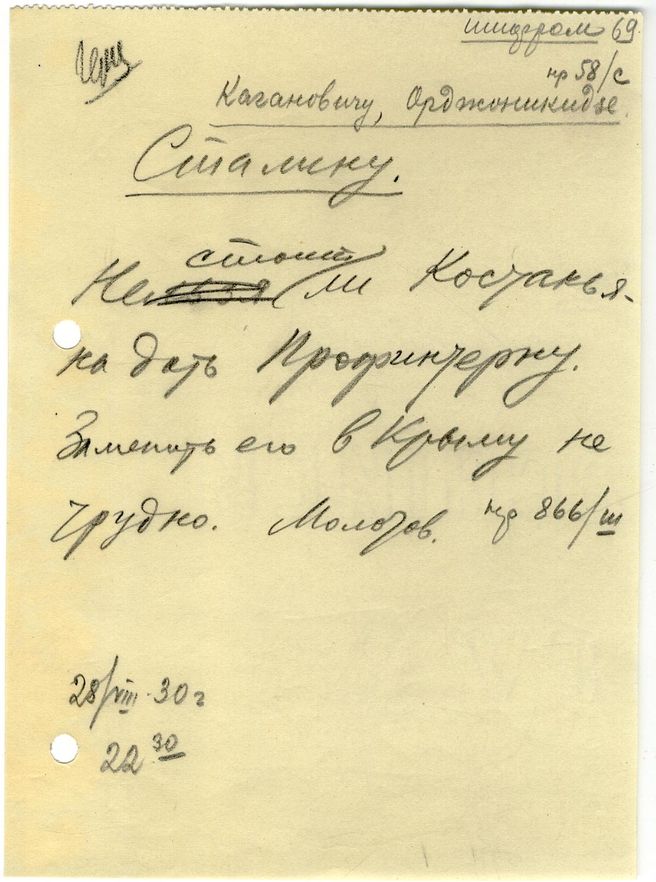 шифром 69
пр 58/с
Кагановичу, Орджоникидзе.
Сталину.
стоит
Не ли Костанья-
на дать Профинтерну.
Заменить его в Крыму не
трудно. Молотов. нр 866/ш
28/VIII 30 г
22 30